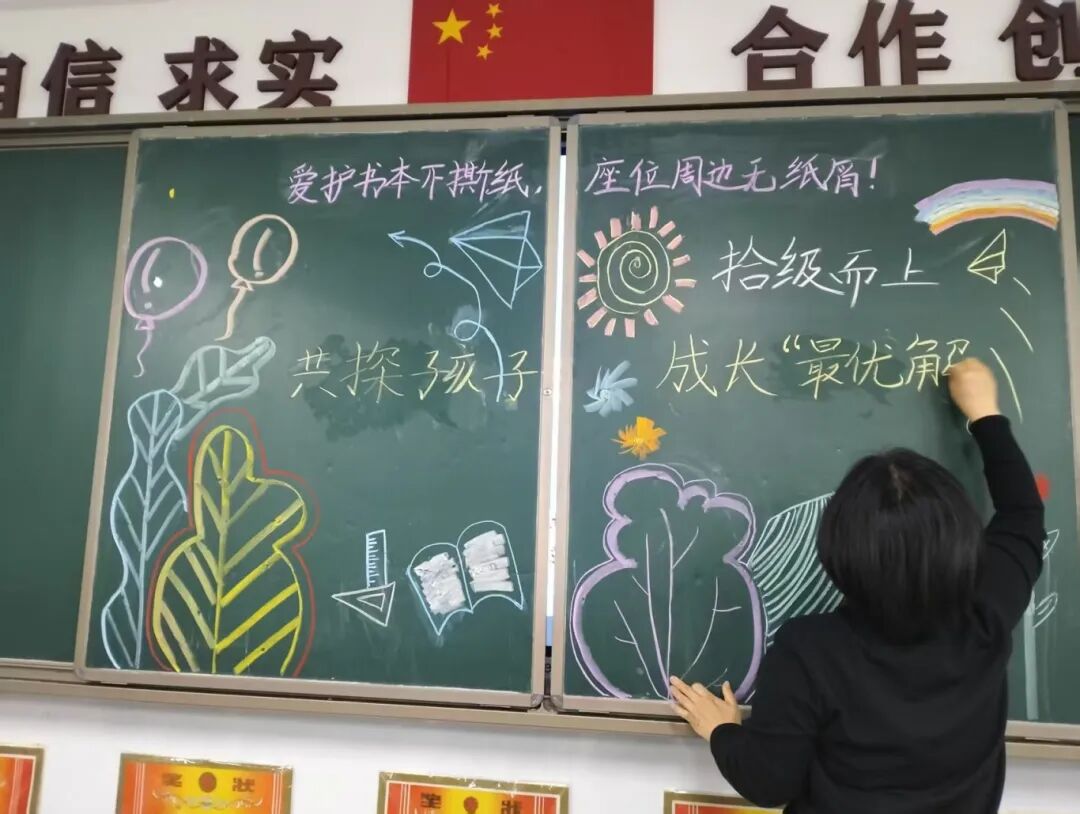 自信 求实 合作 创
爱护书本不撕纸，座位周边无纸屑！
拾级而上
共探孩子成长“最优解
奖 状
奖 状